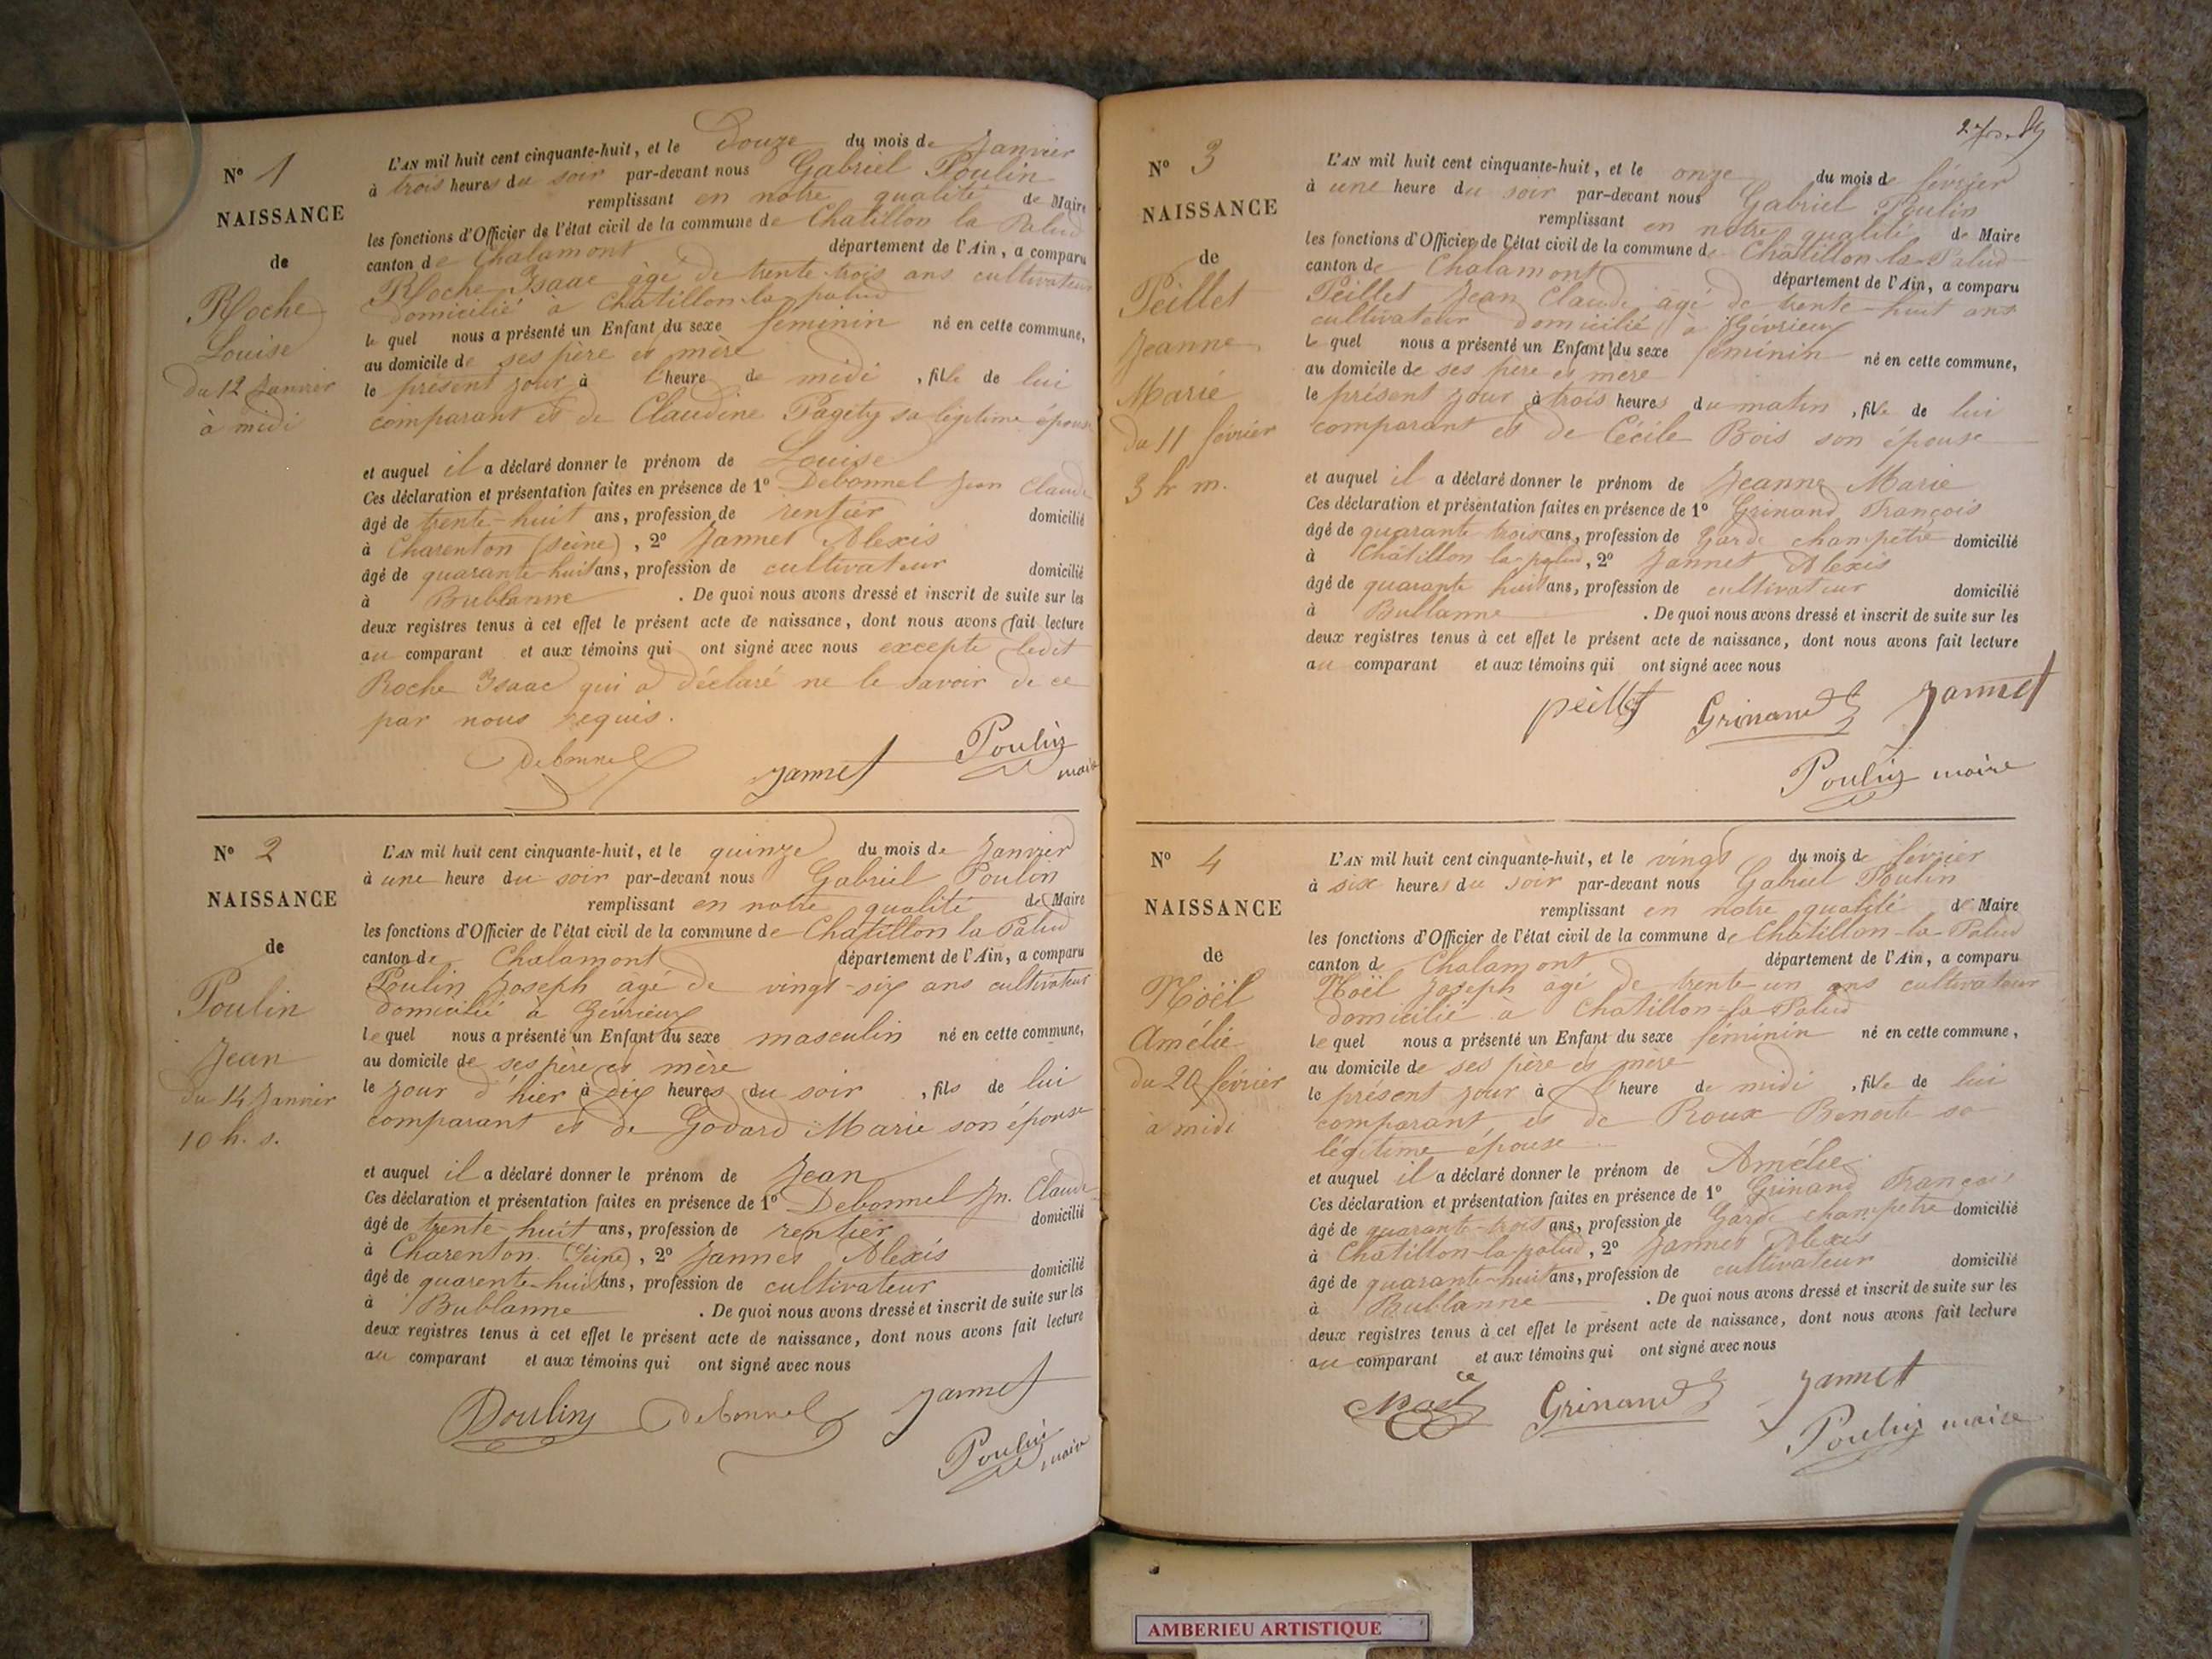 N° 1
NAISSANCE
de
Roche
Louise
du 12 Janvier
à midi
L'AN mil huit cent cinquante-huit, et le Douze du mois de Janvier
à trois heures du soir par-devant nous Gabriel Poulin
remplissant en notre qualité de Maire
les fonctions d'Officier de l'état civil de la commune de Chatillon la Palud
canton de Chalamont département de l'Ain, a comparu
Roche Isaac âgé de trente-trois ans cultivateur
domicilié à Chatillon-la-palud
le quel nous a présenté un Enfant du sexe féminin né en cette commune,
au domicile de ses père et mère
le présent jour à l'heure de midi, fille de lui
comparant et de Claudine Pagety sa légitime épouse
et auquel il a déclaré donner le prénom de Louise
Ces déclaration et présentation faites en présence de 1° Debonnel Jean Claude
âgé de trente-huit ans, profession de rentier domicilié
à Charenton (Seine), 2° Jannet Alexis
âgé de quarante-huit ans, profession de cultivateur domicilié
à Bublanne. De quoi nous avons dressé et inscrit de suite sur les
deux registres tenus à cet effet le présent acte de naissance, dont nous avons fait lecture
au comparant et aux témoins qui ont signé avec nous excepté ledit
Roche Isaac qui a déclaré ne le savoir de ce
par nous requis.
Debonnel Jannet Poulin maire
N° 2
NAISSANCE
de
Poulin
Jean
du 14 Janvier
10 h. s.
L'AN mil huit cent cinquante-huit, et le quinze du mois de Janvier
à une heure du soir par-devant nous Gabriel Poulin
remplissant en notre qualité de Maire
les fonctions d'Officier de l'état civil de la commune de Chatillon la Palud
canton de Chalamont département de l'Ain, a comparu
Poulin Joseph âgé de vingt-six ans cultivateur
domicilié à Gévrieux
le quel nous a présenté un Enfant du sexe masculin né en cette commune,
au domicile de ses père et mère
le jour d'hier à dix heures du soir, fils de lui
comparant et de Godard Marie son épouse
et auquel il a déclaré donner le prénom de Jean
Ces déclaration et présentation faites en présence de 1° Debonnel Jn. Claude
âgé de trente-huit ans, profession de rentier domicilié
à Charenton (Seine), 2° Jannet Alexis
âgé de quarente-huit ans, profession de cultivateur domicilié
à Bublanne. De quoi nous avons dressé et inscrit de suite sur les
deux registres tenus à cet effet le présent acte de naissance, dont nous avons fait lecture
au comparant et aux témoins qui ont signé avec nous
Poulin Debonnel Jannet
Poulin maire
N° 3
NAISSANCE
de
Peillet
Jeanne
Marie
du 11 février
3 h m.
L'AN mil huit cent cinquante-huit, et le onze du mois de février
à une heure du soir par-devant nous Gabriel Poulin
remplissant en notre qualité de Maire
les fonctions d'Officier de l'état civil de la commune de Châtillon-la-Palud
canton de Chalamont département de l'Ain, a comparu
Peillet Jean Claude âgé de trente-huit ans
cultivateur domicilié à Gévrieux
le quel nous a présenté un Enfant du sexe féminin né en cette commune,
au domicile de ses père et mère
le présent jour à trois heures du matin, fille de lui
comparant et de Cécile Bois son épouse
et auquel il a déclaré donner le prénom de Jeanne-Marie
Ces déclaration et présentation faites en présence de 1° Grinand François
âgé de quarante trois ans, profession de Garde champêtre domicilié
à Châtillon la-palud, 2° Jannet Alexis
âgé de quarante huit ans, profession de cultivateur domicilié
à Bullanne. De quoi nous avons dressé et inscrit de suite sur les
deux registres tenus à cet effet le présent acte de naissance, dont nous avons fait lecture
au comparant et aux témoins qui ont signé avec nous
peillet Grinand Jannet
Poulin maire
N° 4
NAISSANCE
de
Noël
Amélie
du 20 février
à midi
L'AN mil huit cent cinquante-huit, et le vingt du mois de février
à six heures du soir par-devant nous Gabriel Poulin
remplissant en notre qualité de Maire
les fonctions d'Officier de l'état civil de la commune de Châtillon-la-Palud
canton d Chalamont département de l'Ain, a comparu
Noël Joseph âgé de trente-un ans cultivateur
domicilié à Chatillon-la-Palud
le quel nous a présenté un Enfant du sexe féminin né en cette commune,
au domicile de ses père et mère
le présent jour à l'heure de midi, fille de lui
comparant et de Roux Benoite sa
légitime épouse
et auquel il a déclaré donner le prénom de Amélie
Ces déclaration et présentation faites en présence de 1° Grinand François
âgé de quarante-trois ans, profession de Garde champêtre domicilié
à Châtillon-la-palud, 2° Jannet Alexis
âgé de quarante-huit ans, profession de cultivateur domicilié
à Bublanne. De quoi nous avons dressé et inscrit de suite sur les
deux registres tenus à cet effet le présent acte de naissance, dont nous avons fait lecture
au comparant et aux témoins qui ont signé avec nous
Noël Grinand Jannet
Poulin maire
AMBERIEU ARTISTIQUE